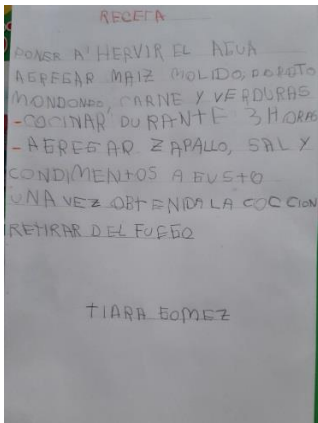 RECETA
PONER A HERVIR EL AGUA
AGREGAR MAIZ MOLIDO, POROTO
MONDONDO, CARNE Y VERDURAS
-COCINAR DURANTE 3 HORAS
-AGREGAR ZAPALLO, SAL Y
CONDIMENTOS A GUSTO
UNA VEZ OBTENIDA LA COCCION
RETIRAR DEL FUEGO
TIARA GOMEZ